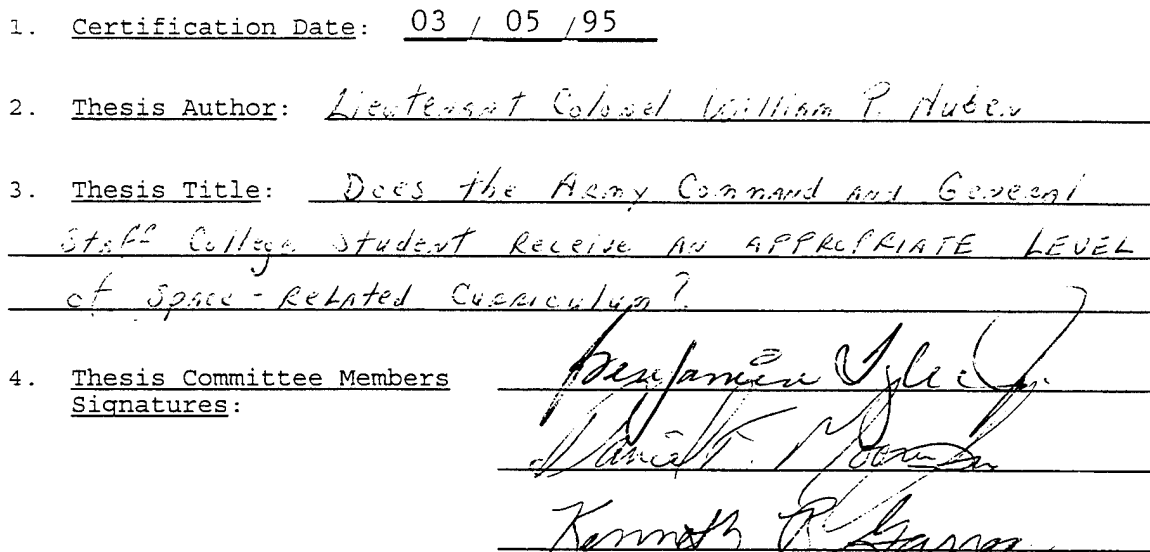 1. Certification Date: 03 / 05 /95
2. Thesis Author: Lieutenant Colonel William P. Huber
3. Thesis Title: Does the Army Command and General
Staff College Student Receive AN APPROPRIATE LEVEL
of Space-Related Curriculum?
4. Thesis Committee Members
Signatures:
Benjamin
Daniel T.
Kenneth R.